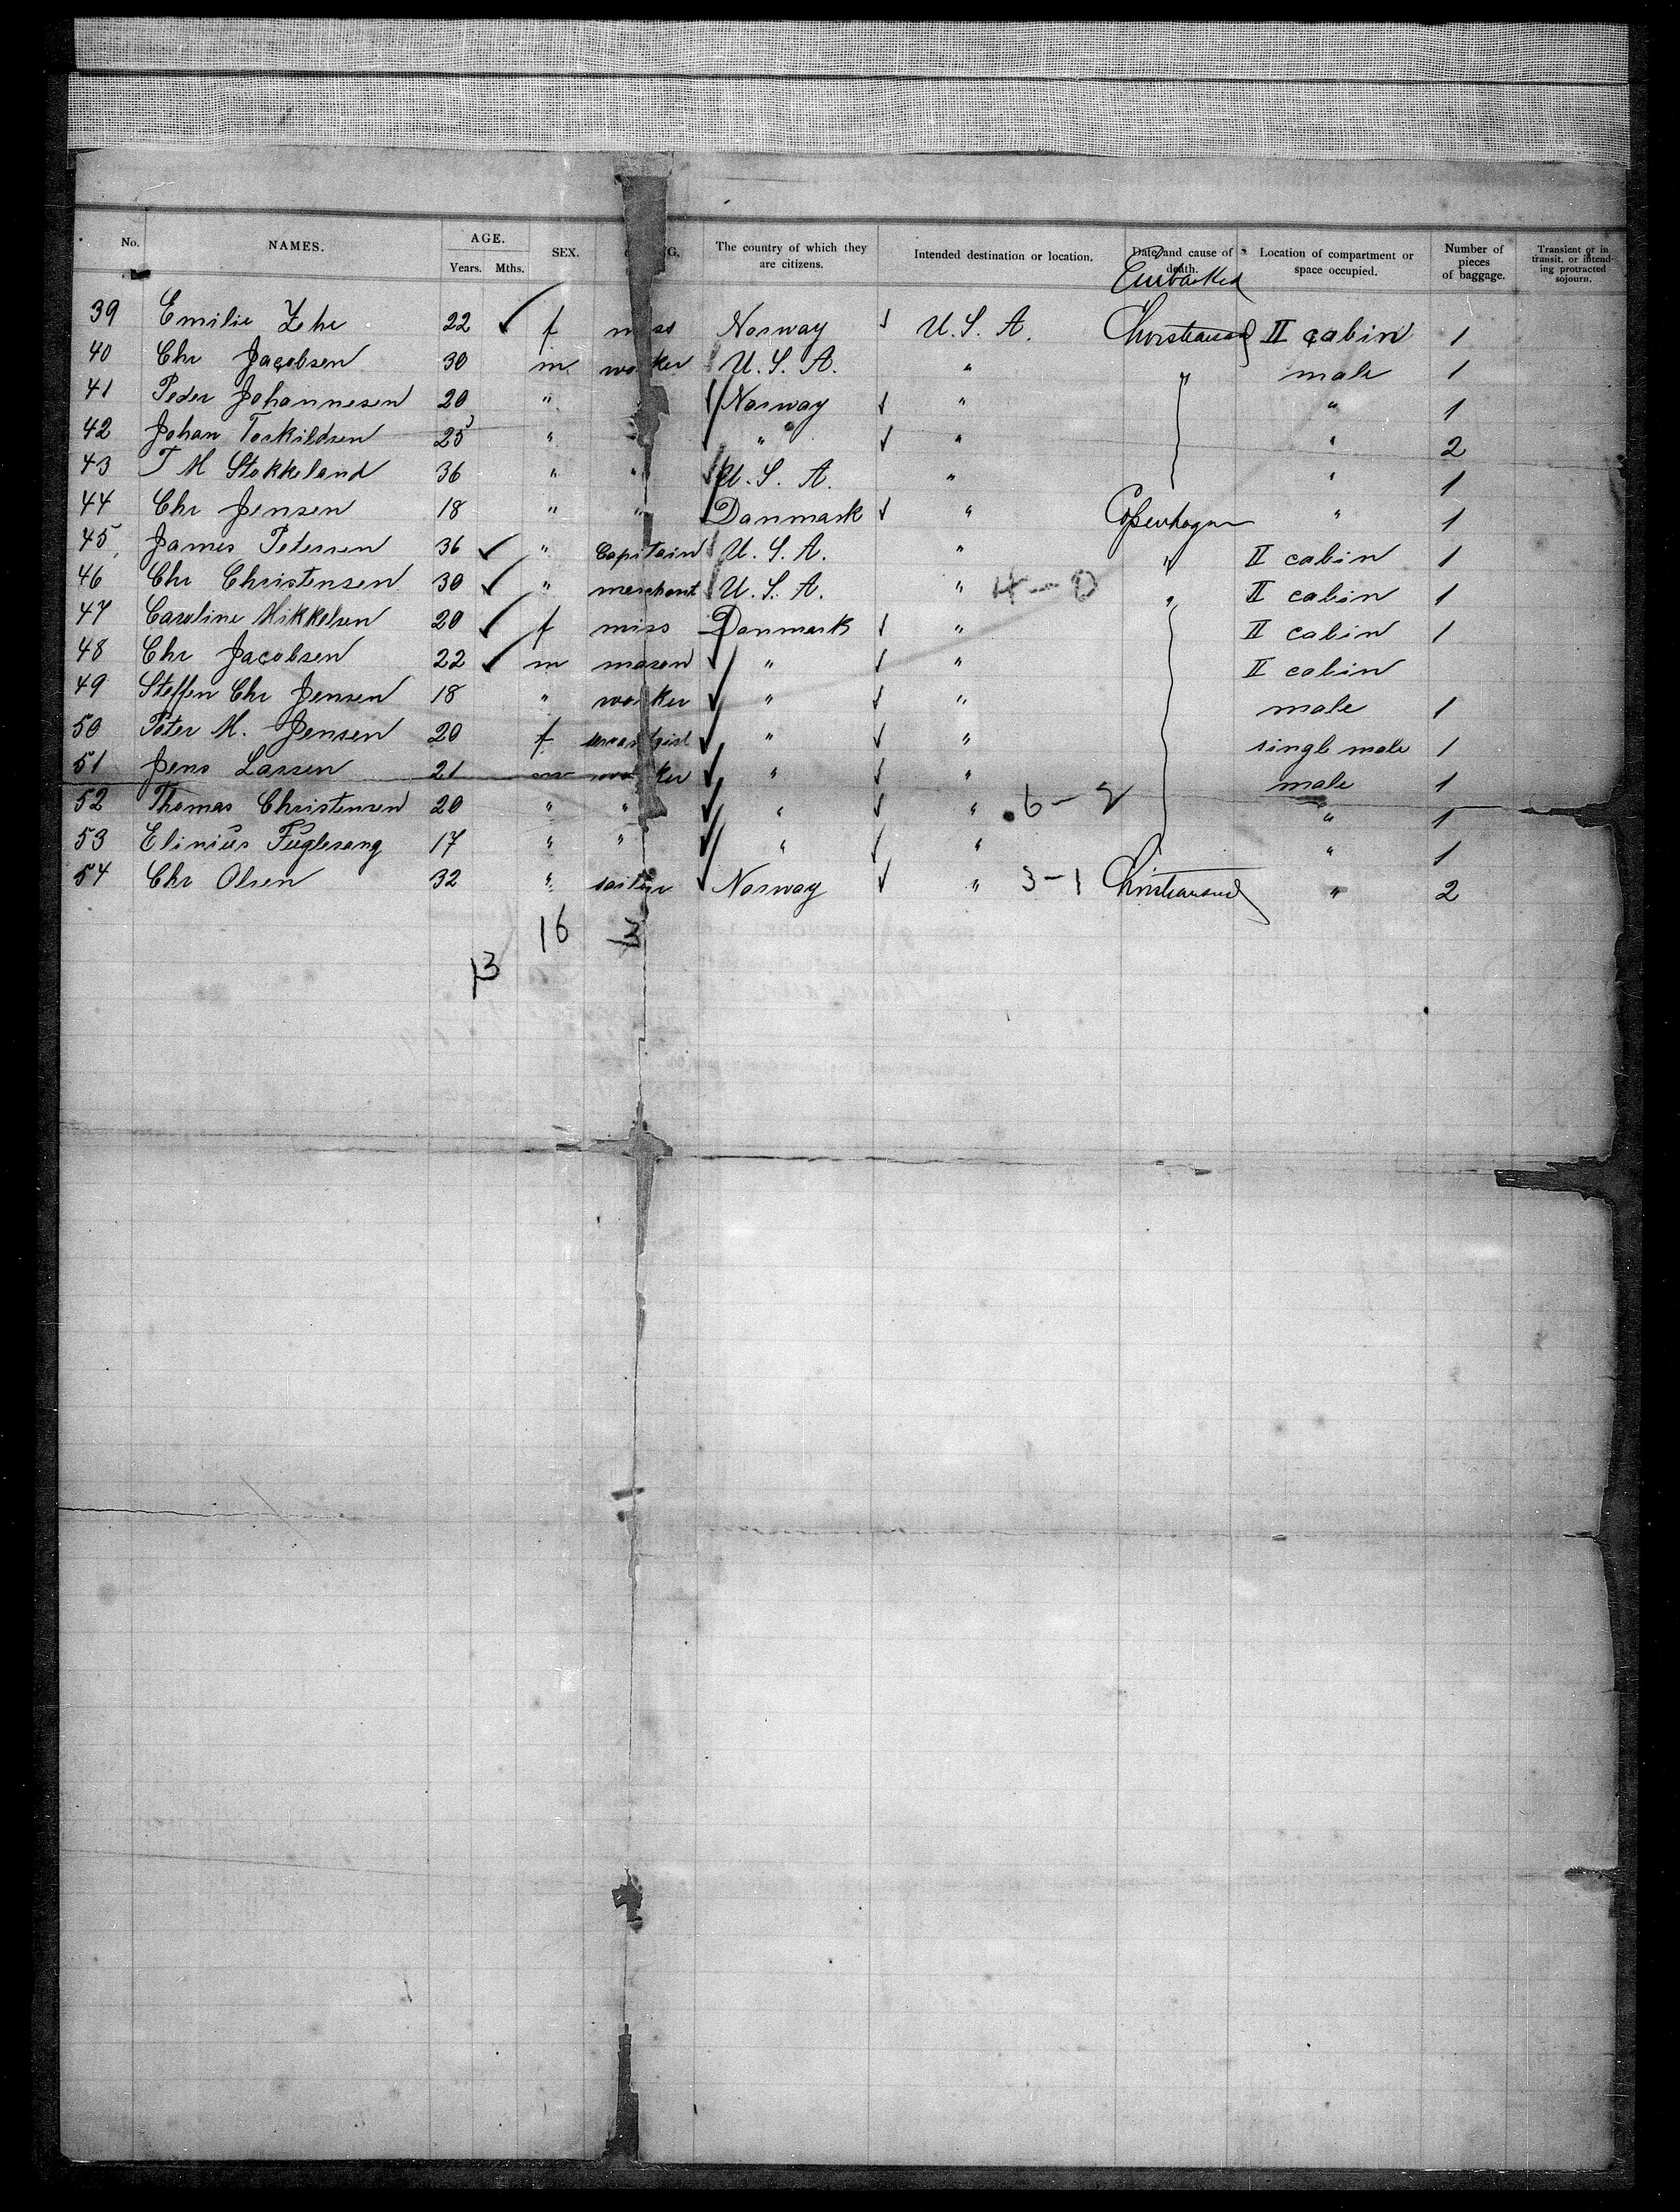 No. NAMES. AGE. Years. Mths. SEX. The country of which they are citizens. Intended destination or location. Date and cause of death. Embarked Location of compartment or space occupied. Number of pieces of baggage. Transient or in transit, or intending protracted sojourn.
39 Emilie 22 ✓ f miss Norway ✓ U. S. A. II cabin 1
40 Chr Jacobsen 30 m worker U. S. A. " " male 1
41 Peder Johannesen 20 " Norway ✓ " " 1
42 Johan Torkildsen 25 " " ✓ " " 2
43 T M Stokkeland 36 " " U. S. A. " " 1
44 Chr Jensen 18 " " Danmark ✓ " Copenhagen " 1
45 James Petersen 36 ✓ " Capitain U. S. A. " " II cabin 1
46 Chr Christensen 30 ✓ " merchant U. S. A. " 4 - 0 " II cabin 1
47 Caroline Mikkelsen 20 ✓ f miss Danmark ✓ " II cabin 1
48 Chr Jacobsen 22 ✓ m mason ✓ " ✓ " II cabin
49 Steffen Chr Jensen 18 " worker ✓ " ✓ " male 1
50 Peter M. Jensen 20 f ✓ " ✓ " single male 1
51 Jens Larsen 21 m worker ✓ " ✓ " male 1
52 Thomas Christensen 20 " " ✓ " ✓ " 6 - 2 " 1
53 Elinius Fuglesang 17 " " ✓ " ✓ " " 1
54 Chr Olsen 32 " sailor ✓ Norway ✓ " 3 - 1 Christiansand " 2
16 3
13